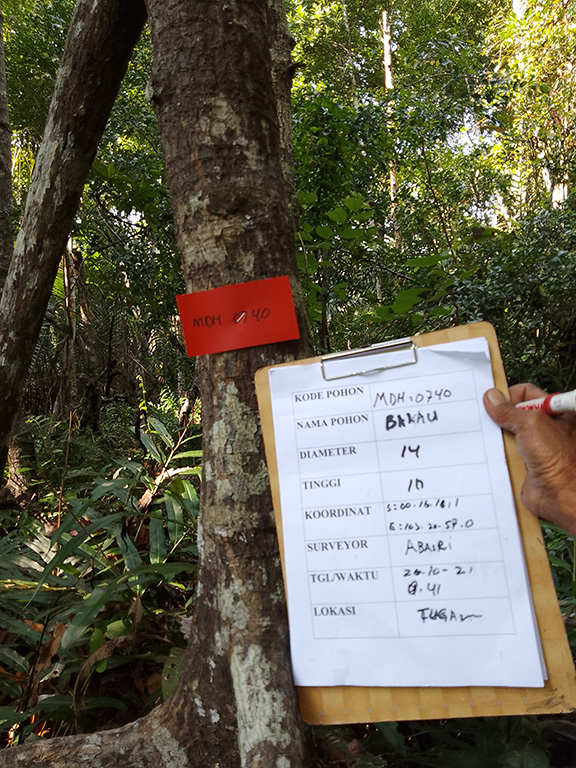 MDH 0740
KODE POHON MDH:0740
NAMA POHON BAKAU
DIAMETER 14
TINGGI 10
KOORDINAT S:00.16.16.1
E:103.20.59.0
SURVEYOR
TGL/WAKTU 26-10-21
9.41
LOKASI